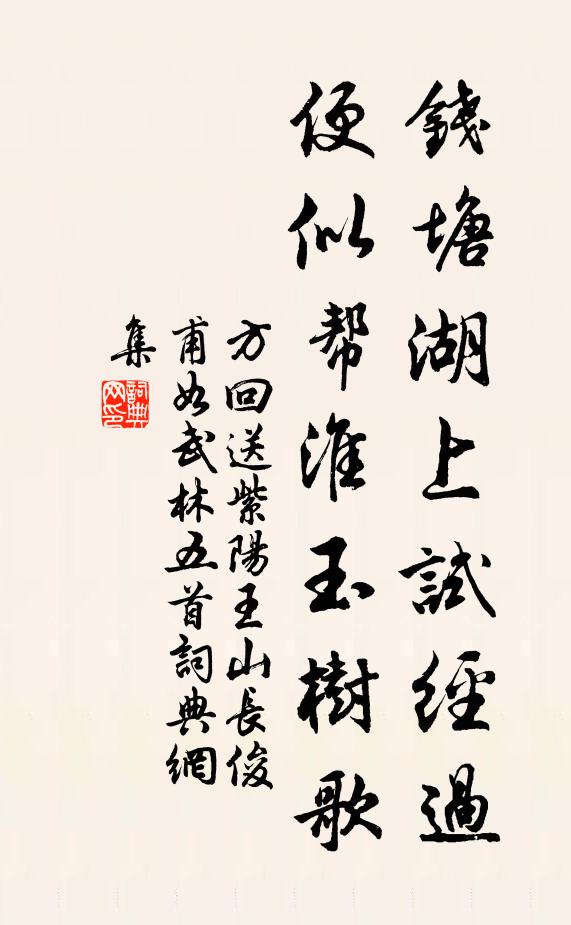 錢塘湖上試經過
便似幇淮玉樹歌
方回送紫陽王山長俊
甫如武林五首詞典網
集
詞典
网印